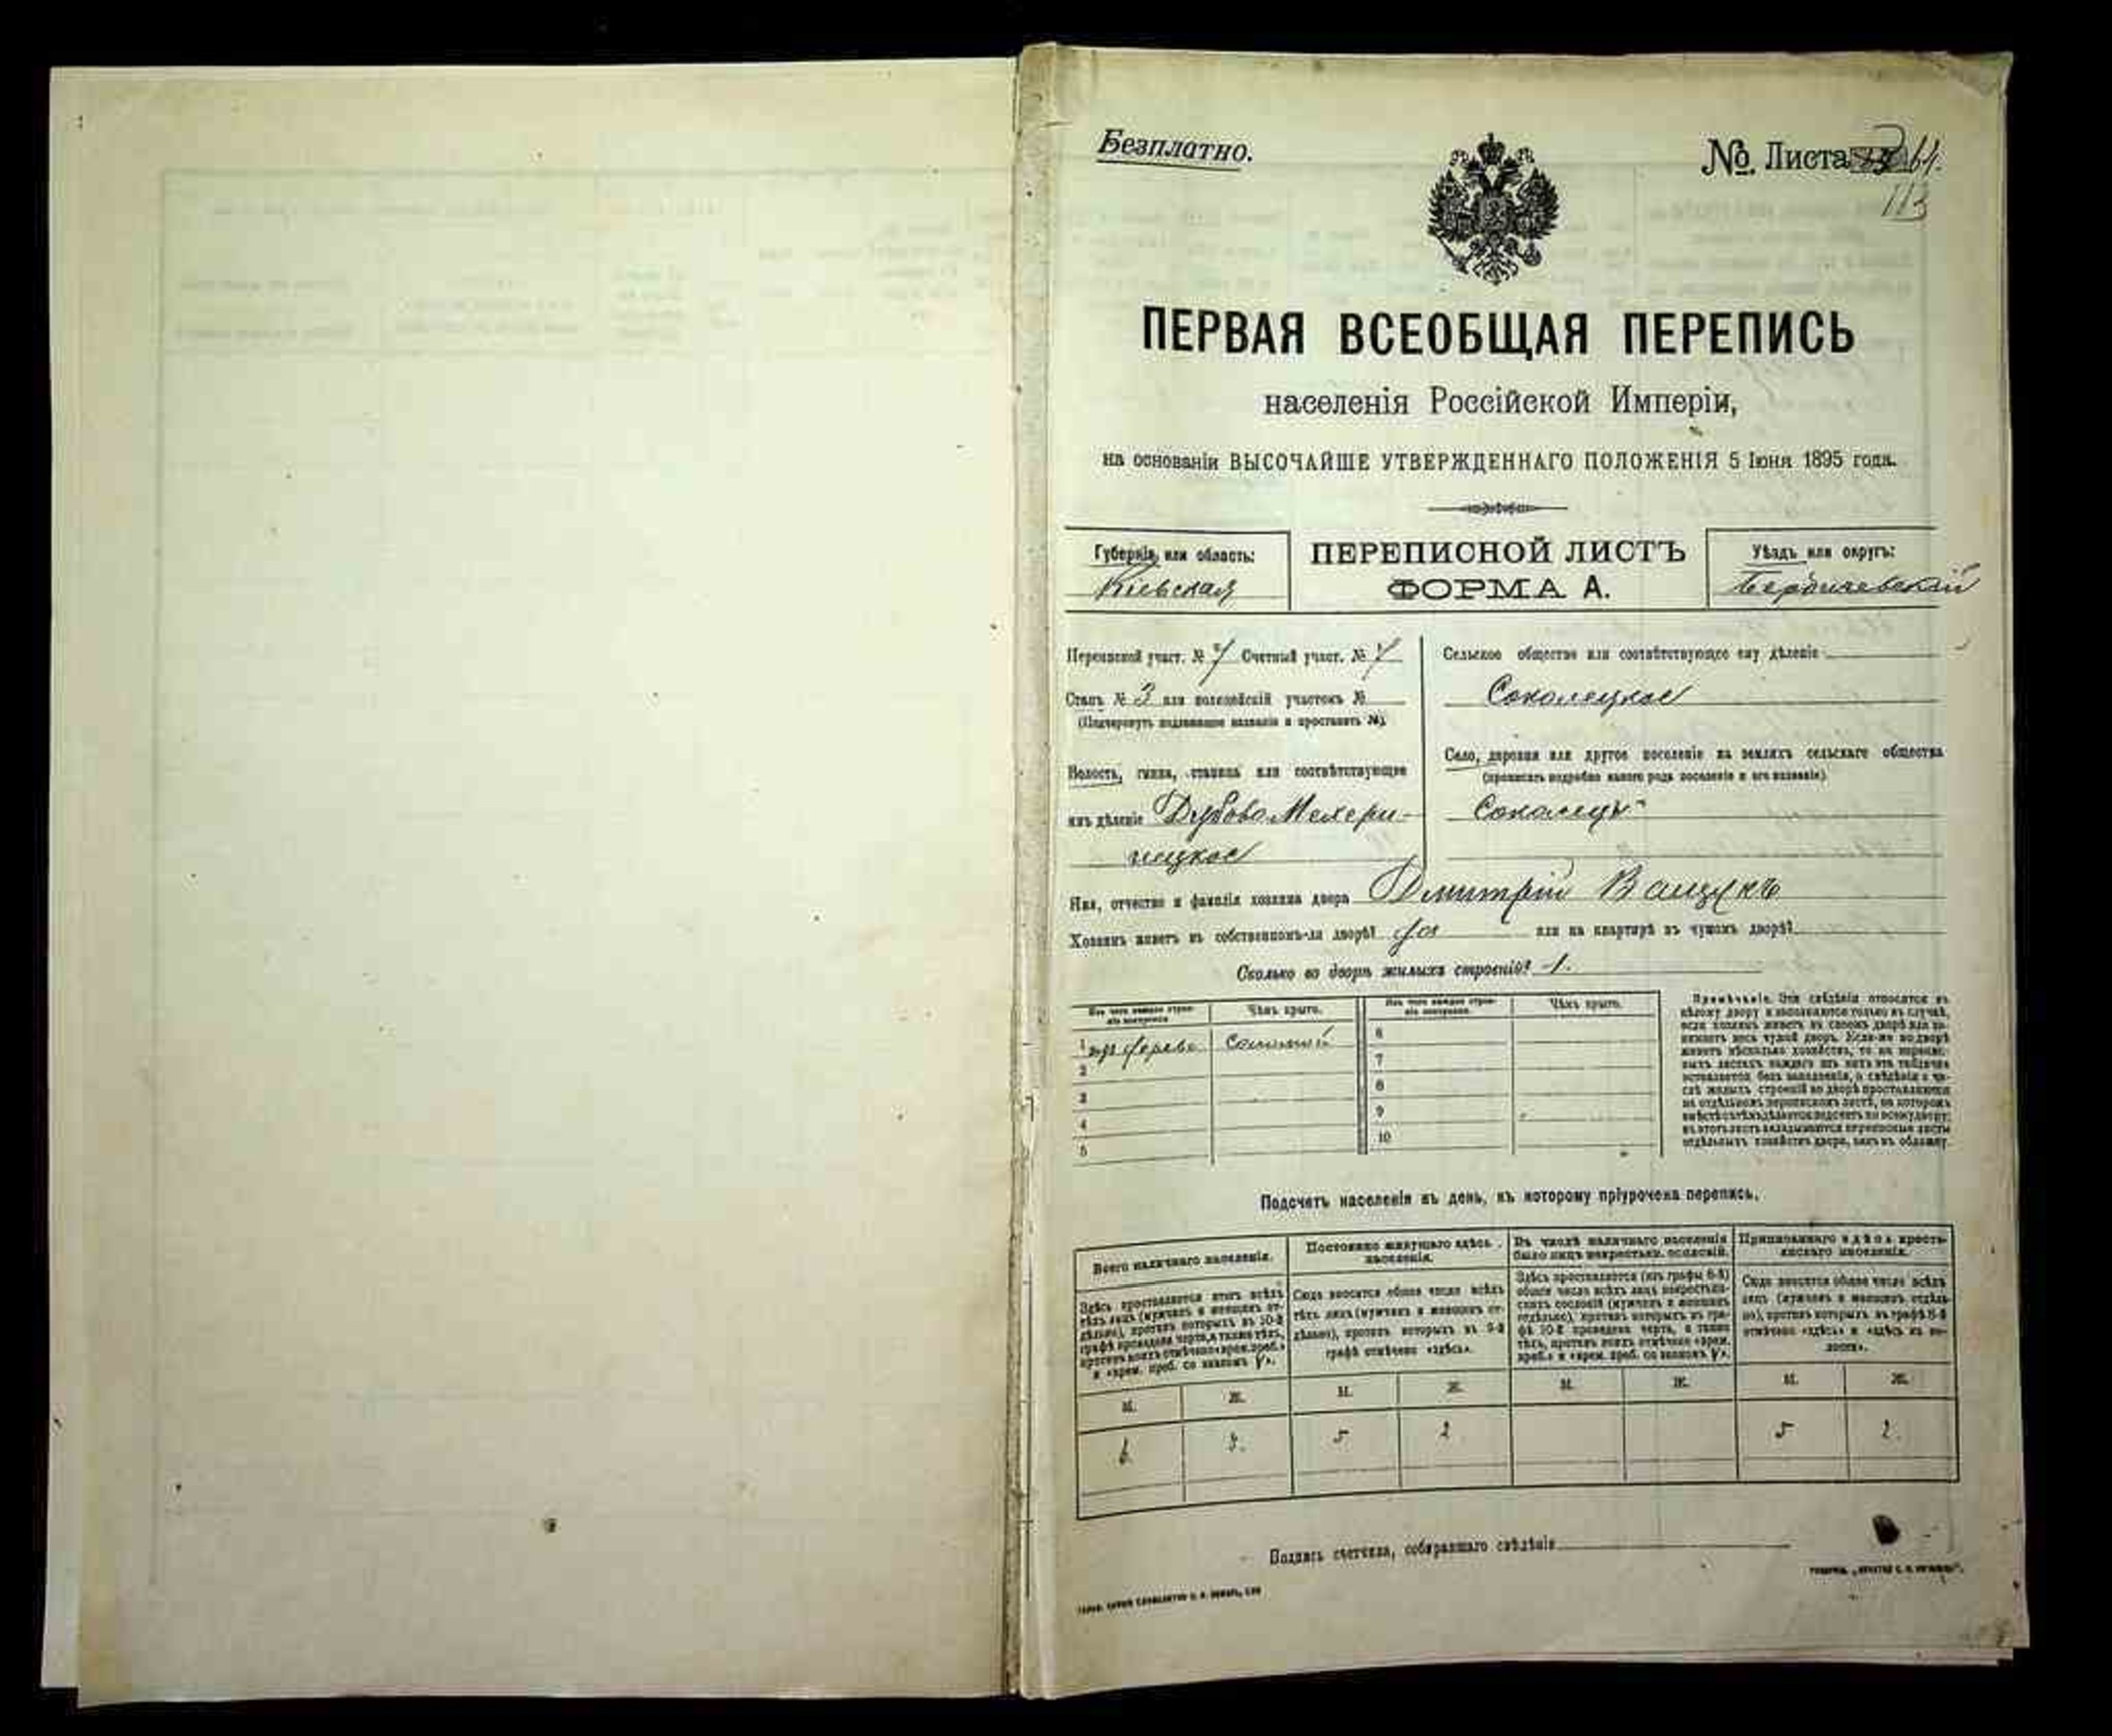 Безплатно.
№ Листа 64.
113
ПЕРВАЯ ВСЕОБЩАЯ ПЕРЕПИСЬ
населенія Россійской Имперіи,
на основаніи ВЫСОЧАЙШЕ УТВЕРЖДЕННАГО ПОЛОЖЕНІЯ 5 Іюня 1895 года.
Губернія или область:
Кіевская
ПЕРЕПИСНОЙ ЛИСТЪ
ФОРМА А.
Уѣздъ или округъ:
Бердичевскій
Переписной участ. № 7 Счетный участ. № 7
Станъ № 3 или полицейскій участокъ №
(Подчеркнуть подлежащее названіе и проставить №).
Волость, гмина, станица или соотвѣтствующее
имъ дѣленіе Дубово Махари-
нецкое
Сельское общество или соотвѣтствующее ему дѣленіе
Соколецкое
Село, деревня или другое поселеніе на земляхъ сельскаго общества
(прописать подробно какого рода поселеніе и его названіе).
Соколецъ
Имя, отчество и фамилія хозяина двора Дмитрій Ващукъ
Хозяинъ живетъ въ собственномъ-ли дворѣ? да или на квартирѣ въ чужомъ дворѣ?
Сколько во дворѣ жилыхъ строеній? 1.
Изъ чего каждое строеніе построено
Чѣмъ крыто.
Изъ чего каждое строеніе построено.
Чѣмъ крыто.
1 изъ дерева Соломой
2
3
4
5
6
7
8
9
10
Примѣчаніе. Эти свѣдѣнія относятся къ
цѣлому двору и заполняются только въ случаѣ,
если хозяинъ живетъ въ своемъ дворѣ или за-
нимаетъ весь чужой дворъ. Если-же во дворѣ
живетъ нѣсколько хозяйствъ, то на перепис-
ныхъ листахъ каждаго изъ нихъ эта табличка
оставляется безъ заполненія, а свѣдѣнія о чи-
слѣ жилыхъ строеній во дворѣ проставляются
на отдѣльномъ переписномъ листѣ, на которомъ
вмѣстѣ съ тѣмъ дѣлается подсчетъ по всему двору;
въ этотъ листъ вкладываются переписные листы
отдѣльныхъ хозяйствъ двора, какъ въ обложку.
Подсчетъ населенія въ день, къ которому пріурочена перепись.
Всего наличнаго населенія.
Здѣсь проставляется итогъ всѣхъ
тѣхъ лицъ (мужчинъ и женщинъ от-
дѣльно), противъ которыхъ въ 10-й
графѣ проведена черта, а также тѣхъ,
противъ коихъ отмѣчено «врем. преб.»
и «врем. преб. со знакомъ V».
Постоянно живущаго здѣсь
населенія.
Сюда вносится общее число всѣхъ
тѣхъ лицъ (мужчинъ и женщинъ от-
дѣльно), противъ которыхъ въ 9-й
графѣ отмѣчено «здѣсь».
Въ числѣ наличнаго населенія
было лицъ некрестьянс. сословій.
Здѣсь проставляется (изъ графы 6-й)
общее число всѣхъ лицъ некрестьян-
скихъ сословій (мужчинъ и женщинъ
отдѣльно), противъ которыхъ въ гра-
фѣ 10-й проведена черта, а также
тѣхъ, противъ коихъ отмѣчено «врем.
преб.» и «врем. преб. со знакомъ V».
Приписаннаго здѣсь кресть-
янскаго населенія.
Сюда вносится общее число всѣхъ
лицъ (мужчинъ и женщинъ отдѣль-
но), противъ которыхъ въ графѣ 8-й
отмѣчено «здѣсь» и «здѣсь въ во-
лости».
М. Ж. М. Ж. М. Ж. М. Ж.
6 3. 5 2 5 2.
Подпись счетчика, собиравшаго свѣдѣнія